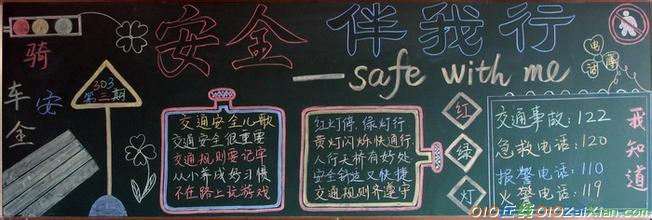 安全伴我行
—safe with me
骑车安全
303
第三期
交通安全儿歌
交通安全很重要
交通规则要记牢
从小养成好习惯
不在路上玩游戏
红灯停,绿灯行
黄灯闪烁快通行
人行天桥有好处
安全舒适又快捷
交通规则齐遵守
红
绿
灯
电话
交通事故:122
急救电话:120
报警电话:110
火警电话:119
我知道
010在线010ZaiXian.com